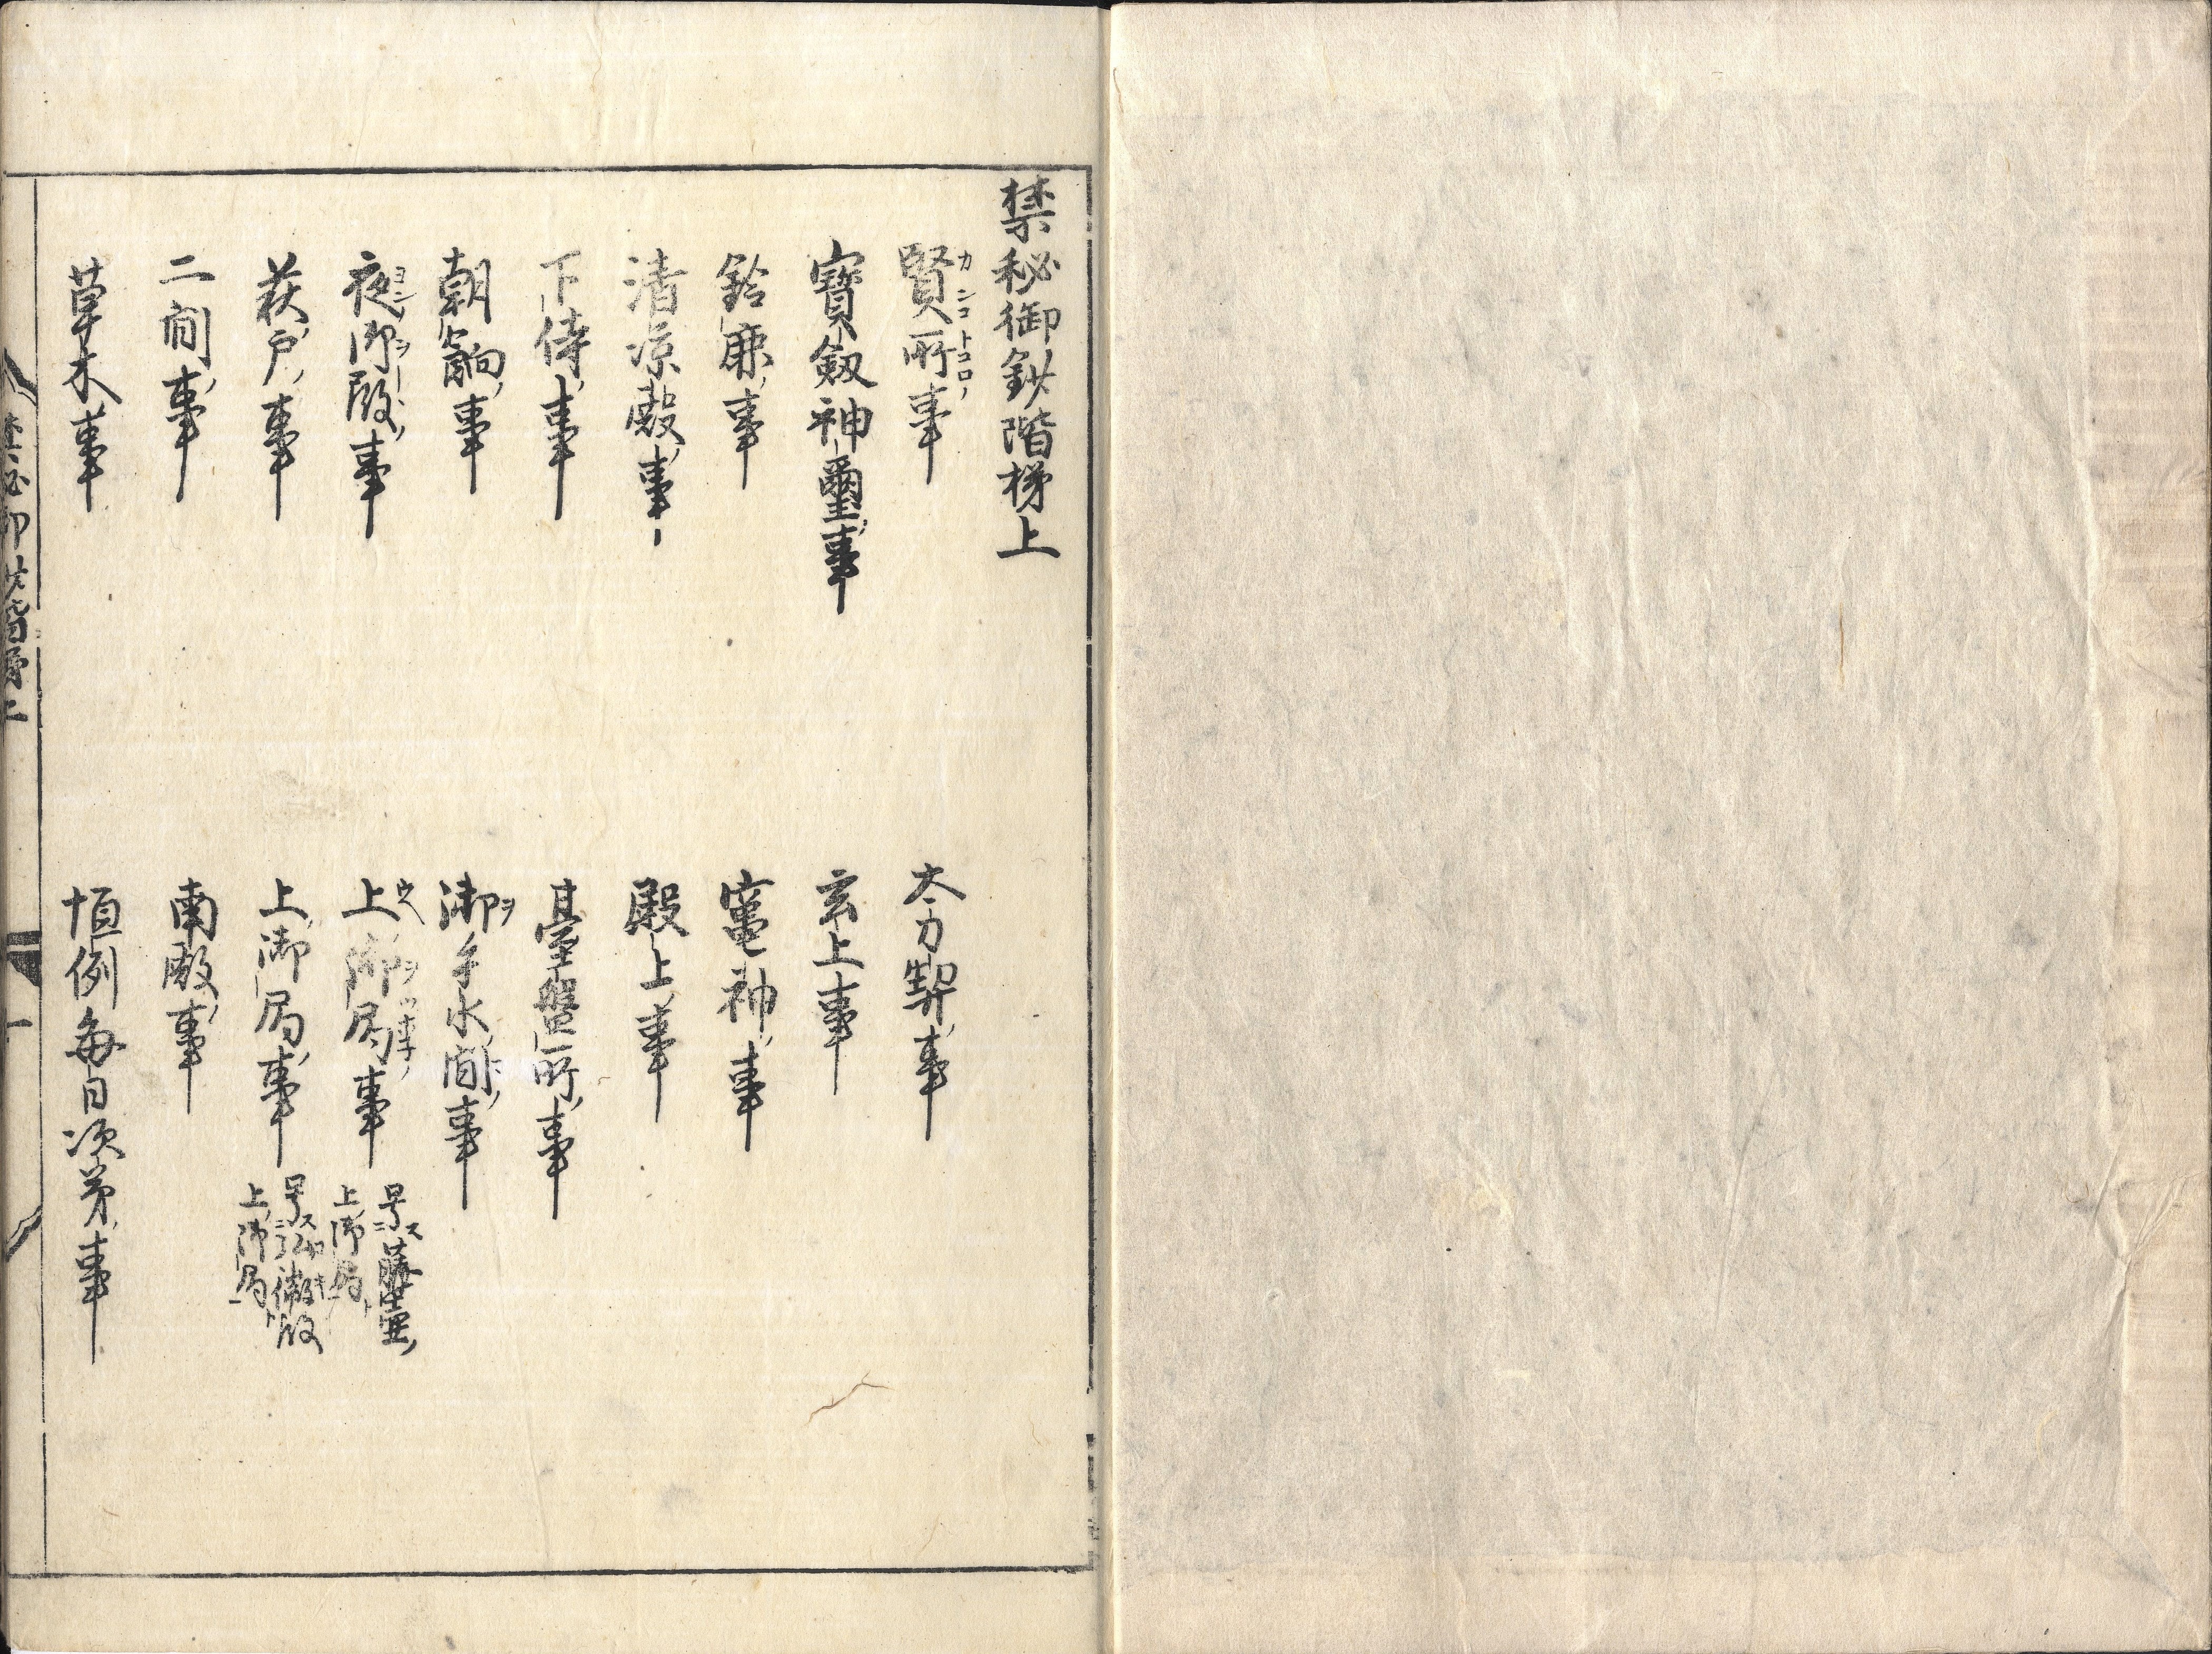 禁秘御鈔階梯上
賢所事
カンコトコロノ
太刀契事
寶劔神璽事
玄上事
鈴䋄事
竈神事
清凉殿事
殿上事
下侍事
臺盤所事
朝餉事
御手水間事
夜御殿事
上御局事
号藤壺
上御局
萩戸事
上御局事
号弘徽殿
上御局
二間事
南殿事
草木事
恒例毎日次第事